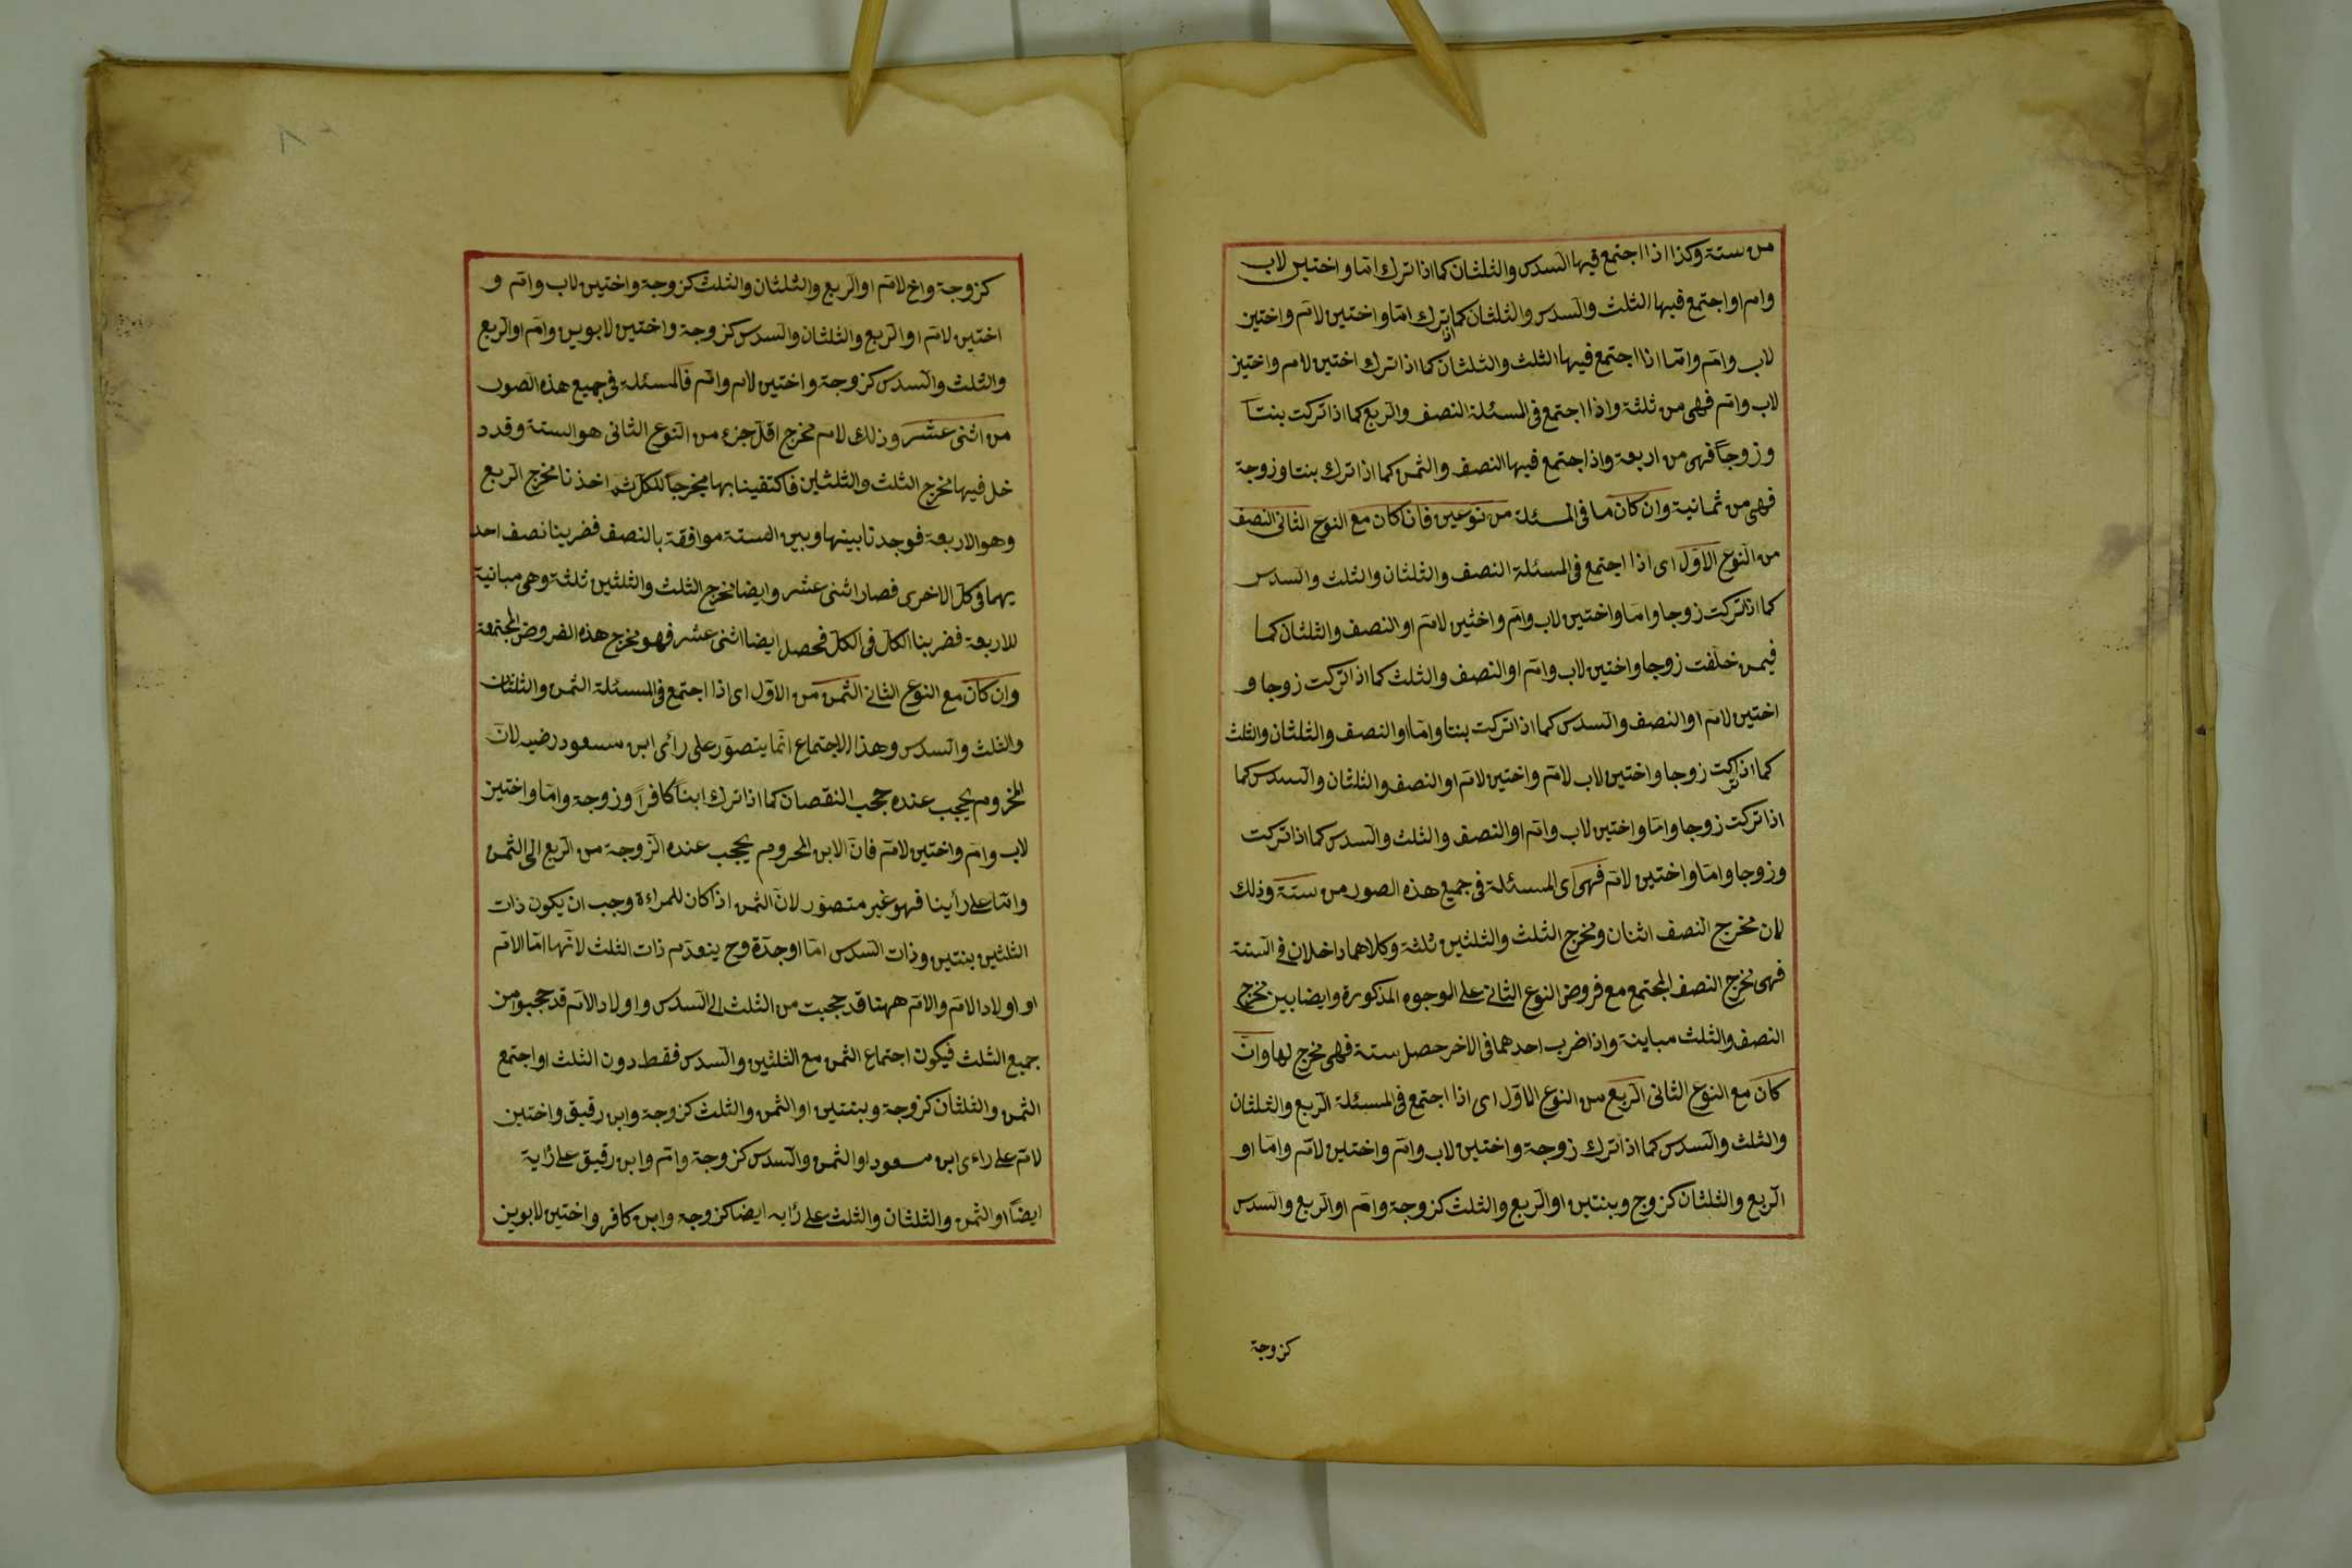 من ستة وكذا اذا اجتمع فيها السدس والثلثان كما اذا ترك اما واختين لاب
وام او اجتمع فيها الثلث والسدس والثلثان كما اذا ترك اما واختين لام واختين
لاب وام واما اذا اجتمع فيها الثلث والثلثان كما اذا ترك اختين لام واختين
لاب وام فهى من ثلثة واذا اجتمع فى المسئلة النصف والربع كما اذا تركت بنتا
وزوجا فهى من اربعة واذا اجتمع فيها النصف والثمن كما اذا ترك بنتا وزوجة
فهى من ثمانية وان كان ما فى المسئلة من نوعين فان كان مع النوع الثانى النصف
من النوع الاول اى اذا اجتمع فى المسئلة النصف والثلثان والثلث والسدس
كما اذا تركت زوجا واما واختين لاب وام واختين لام او النصف والثلثان كما
فيمن خلفت زوجا واختين لاب وام او النصف والثلث كما اذا تركت زوجا و
اختين لام او النصف والسدس كما اذا تركت بنتا واما او النصف والثلثان والثلث
كما اذا تركت زوجا واختين لاب لام واختين لام او النصف والثلثان والسدس كما
اذا تركت زوجا واما واختين لاب وام او النصف والثلث والسدس كما اذا تركت
وزوجا واما واختين لام فهى اى المسئلة فى جميع هذه الصور من ستة وذلك
لان مخرج النصف اثنان ومخرج الثلث والثلثين ثلثة وكلاهما داخلان فى الستة
فهى مخرج النصف المجتمع مع فروض النوع الثانى على الوجوه المذكورة وايضا بين مخرج
النصف والثلث مباينة واذا ضرب احدهما فى الاخر حصل ستة فهى مخرج لها وان
كان مع النوع الثانى الربع من النوع الاول اى اذا اجتمع فى المسئلة الربع والثلثان
والثلث والسدس كما اذا ترك زوجة واختين لاب وام واختين لام واما او
الربع والثلثان كزوج وبنتين او الربع والثلث كزوجة وام او الربع والسدس
كزوجة
كزوجة واخ لام او الربع والثلثان والثلث كزوجة واختين لاب وام و
اختين لام او الربع والثلثان والسدس كزوجة واختين لابوين وام او الربع
والثلث والسدس كزوجة واختين لام وام فالمسئلة فى جميع هذه الصور
من اثنى عشر وذلك لان مخرج اقل جزء من النوع الثانى هو الستة وقد د
خل فيها مخرج الثلث والثلثين فاكتفينا بها مخرجا للكل ثم اخذنا مخرج الربع
وهو الاربعة فوجدنا بينها وبين الستة موافقة بالنصف فضربنا نصف احد
يهما فى كل الاخرى فصار اثنى عشر وايضا مخرج الثلث والثلثين ثلثة وهى مباينة
للاربعة فضربنا الكل فى الكل فحصل ايضا اثنى عشر فهو مخرج هذه الفروض المجتمعة
وان كان مع النوع الثانى الثمن من الاول اى اذا اجتمع فى المسئلة الثمن والثلثان
والثلث والسدس وهذا الاجتماع انما يتصور على رأى ابن مسعود رضيه لان
المحروم يحجب عنده حجب النقصان كما اذا ترك ابنا كافرا وزوجة واما واختين
لاب وام واختين لام فان الابن المحروم يحجب عنده الزوجة من الربع الى الثمن
واما على رأينا فهو غير متصور لان الثمن اذا كان للمراءة وجب ان يكون ذات
الثلثين بنتين وذات السدس اما او جدة وح ينعدم ذات الثلث لانها اما الام
او اولاد الام والام ههنا قد حجبت من الثلث الى السدس واولاد الام قد حجبوا من
جميع الثلث فيكون اجتماع الثمن مع الثلثين والسدس فقط دون الثلث او اجتمع
الثمن والثلثان كزوجة وبنتين او الثمن والثلث كزوجة وابن رقيق واختين
لام على راءى ابن مسعود او الثمن والسدس كزوجة وام وابن رقيق على رأيه
ايضا او الثمن والثلثان والثلث على رأيه ايضا كزوجة وابن كافر واختين لابوين